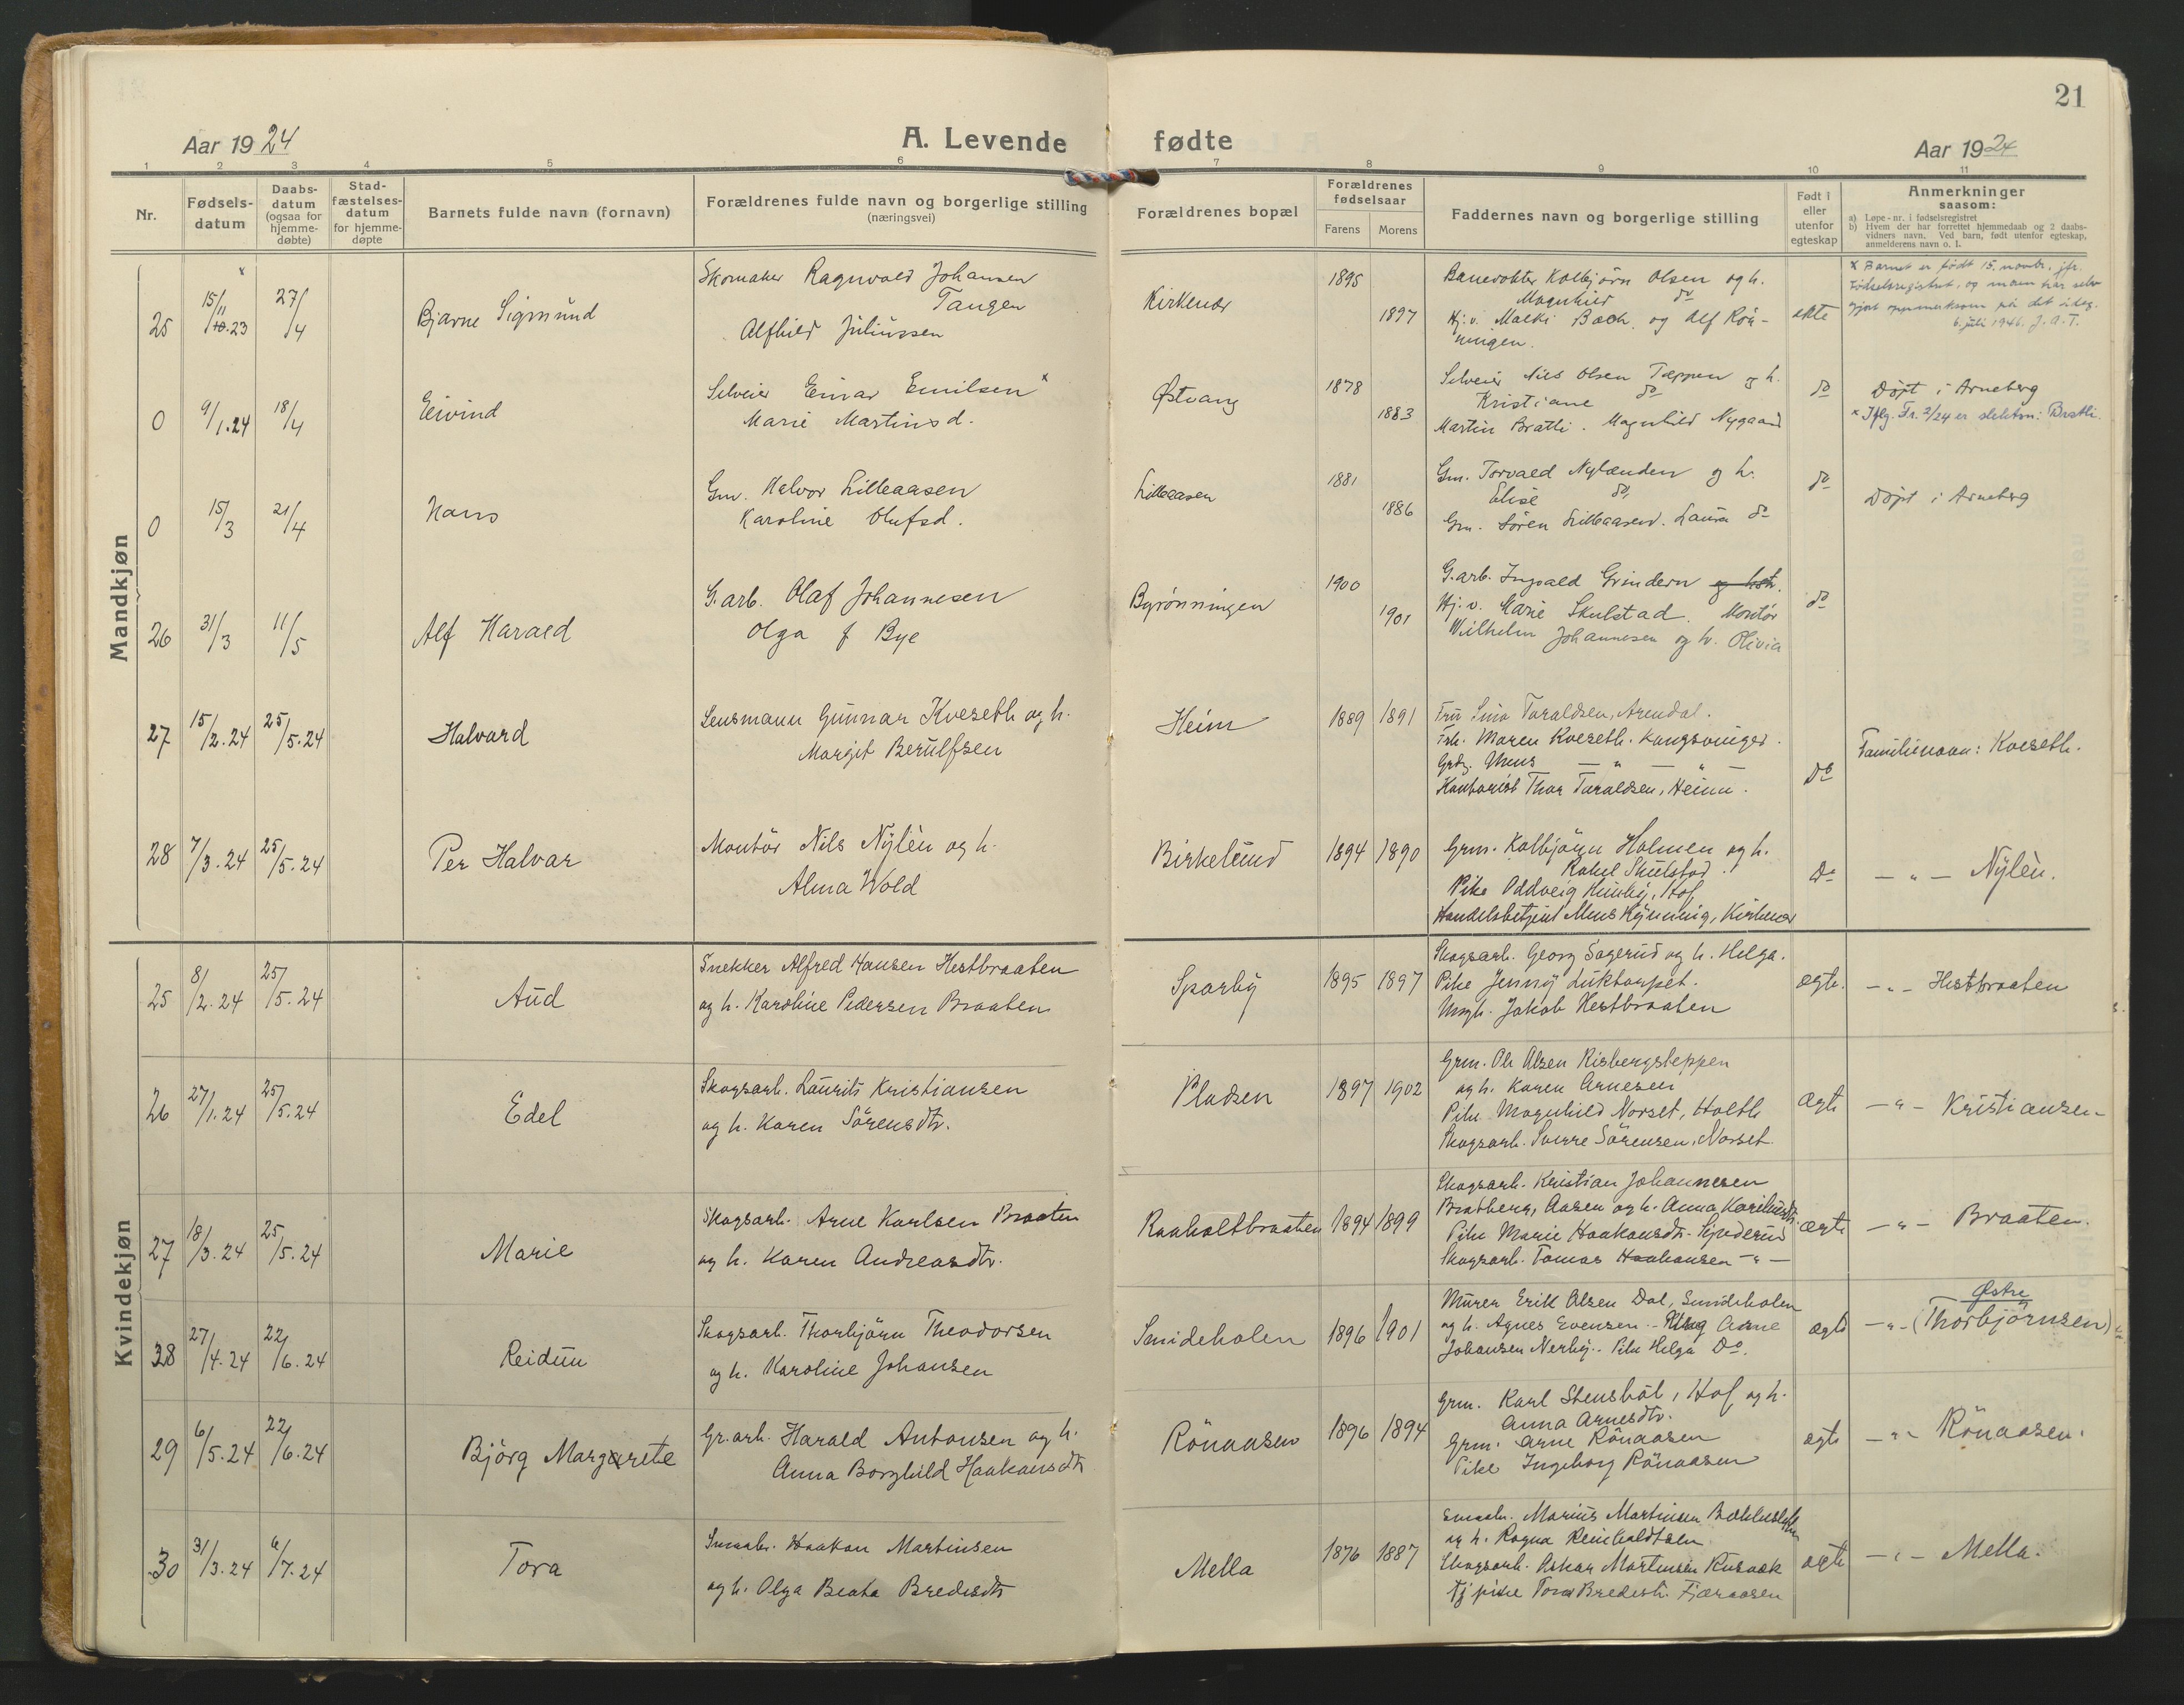 21
Aar 1924
A. Levende fødte
Aar 1924
1 2 3 4 5 6 7 8 9 10 11
Nr.
Fødsels-
datum
Daabs-
datum
(ogsaa for
hjemme-
døbte)
Stad-
fæstelses-
datum
for hjemme-
døpte
Barnets fulde navn (fornavn)
Forældrenes fulde navn og borgerlige stilling
(næringsvei)
Forældrenes bopæl
Forældrenes
fødselsaar
Farens Morens
Faddernes navn og borgerlige stilling
Født i
eller
utenfor
egteskap
Anmerkninger
saasom:
a) Løpe-nr. i fødselsregistret
b) Hvem der har forrettet hjemmedaab og 2 daabs-
vidners navn. Ved barn, født utenfor egteskap,
anmelderens navn o. l.
Mandkjøn
25 x 15/11 10.23 27/4 Bjarne Sigmund
Skomaker Ragnvald Johansen
Tangen
Alfhild Juliussen
Kirkenær 1895 1897
Banevokter Kolbjørn Olsen og h.
Magnhild do
Hj.v. Malki Bach og Alf Rön-
ningen.
ekte
x Barnet er født 15. novbr. jfr.
fødselsregistret, og mann har selv
gjort oppmerksom på det idag.
6. juli 1946. J.A.T.
0 9/1.24 18/4 Eivind
Selveier Einar Emilsen x
Marie Martinsd.
Østvang 1878 1883
Selveier Nils Olsen Tæppen og h.
Kristiane do
Martin Bratli. Magnhild Nygaard
do
Döpt i Arneberg
x Iflg. Fr. 2/24 er slektsn: Bratli.
0 15/3 21/4 Hans
Gm. Halvor Lilleaasen
Karoline Olufsd.
Lilleaasen 1881 1886
Gm. Torvald Nylænden og h.
Elise do
Gm. Sören Lilleaasen. Laura do
do
Döpt i Arneberg
26 31/3 11/5 Alf Harald
G.arb. Olaf Johannesen
Olga f Bye
Byrönningen 1900 1901
G.arb. Ingvald Grindern og hstr.
Hj.v. Marie Skulstad. Montör
Wilhelm Johannesen og h. Olivia
do
27 15/2.24 25/5.24 Halvard
Lensmann Gunnar Kveseth og h.
Margit Berulfsen
Heim 1889 1891
Fru Lina Taraldsen, Arendal.
Frk. Maren Kveseth. Kongsvinger.
Grbr. Mons — " — " —
Kontorist Thor Taraldsen, Heim.
Do
Familienavn: Kveseth.
28 7/3.24 25/5.24 Per Halvar
Montör Nils Nylèn og h.
Alma Wold
Birkelund 1894 1890
Grm. Kolbjörn Holmen og h.
Rakel Skulstad.
Pike Oddveig Huseby, Hof
Handelsbetjent Mons Rönning, Kirkenær
Do
— " — Nylèn.
Kvindekjøn
25 8/2.24 25/5.24 Aud
Snekker Alfred Hansen Hestbraaten
og h. Karoline Pedersen Braaten
Sparby 1895 1897
Skogsarb. Georg Sagerud og h. Helga.
Pike Jenny Luktorpet.
Ungk. Jakob Hestbraaten
egte.
— " — Hestbraaten
26 27/1.24 25/5.24 Edel
Skogsarb. Laurits Kristiansen
og h. Karen Sörensdtr.
Pladsen 1897 1902
Grm. Ole Olsen Risbergsteppen
og h. Karen Arnesen
Pike Magnhild Norset, Holth
Skogsarb. Sverre Sörensen, Norset.
Ægte
— " — Kristiansen
27 18/3.24 25/5.24 Marie
Skogsarb. Arne Karlsen Braaten
og h. Karen Andreasdtr.
Raaholtbraaten 1894 1899
Skogsarb. Kristian Johannesen
Bratberg, Aasen og h. Anna Karelius dtr.
Pike Marie Haakonsdtr. Gjuderud
Skogsarb. Tomas Haakonsen — " —
ægte
— " — Braaten.
28 27/4.24 22/6.24 Reidun
Skogsarb. Thorbjörn Theodorsen
og h. Karoline Johansen
Smideholen 1896 1901
Murer Erik Olsen Dal, Smideholen
og h. Agnes Evensen. Ung Arne
Johansen Nerby.. Pike Helga Do.
ægte
Østre
— " — (Thorbjörnsen)
29 6/5.24 22/6.24 Björg Margarete
Gr.arb. Harald Antonsen og h.
Anna Borghild Haakonsdtr
Rönaasen 1896 1894
Grm. Karl Stenshöl, Hof og h.
Anna Arnesdtr.
Grm. Arne Rönaasen
Pike Ingeborg Rönaasen
ægte
— " — Rönaasen.
30 31/3.24 6/7.24 Tora
Smaabr. Haakon Martinsen
og h. Olga Beata Bredesdtr
Mella 1876 1887
Smaabr. Marius Martinsen
og h. Ragna
Skogsarb. Oskar Martinsen
Tj pike Tora Bredesdtr. Fjæraasen
ægte
— " — Mella.